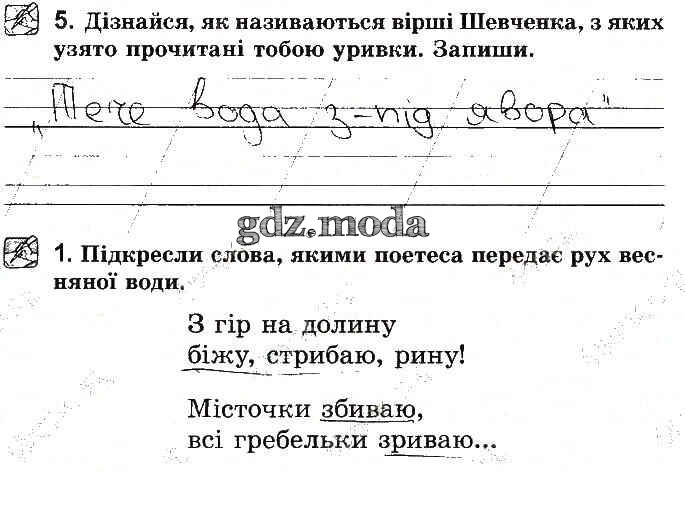 5. Дізнайся, як називаються вірші Шевченка, з яких
узято прочитані тобою уривки. Запиши.
„Тече вода з-під явора"
gdz.moda
1. Підкресли слова, якими поетеса передає рух вес-
няної води.
З гір на долину
біжу, стрибаю, рину!
Місточки збиваю,
всі гребельки зриваю...